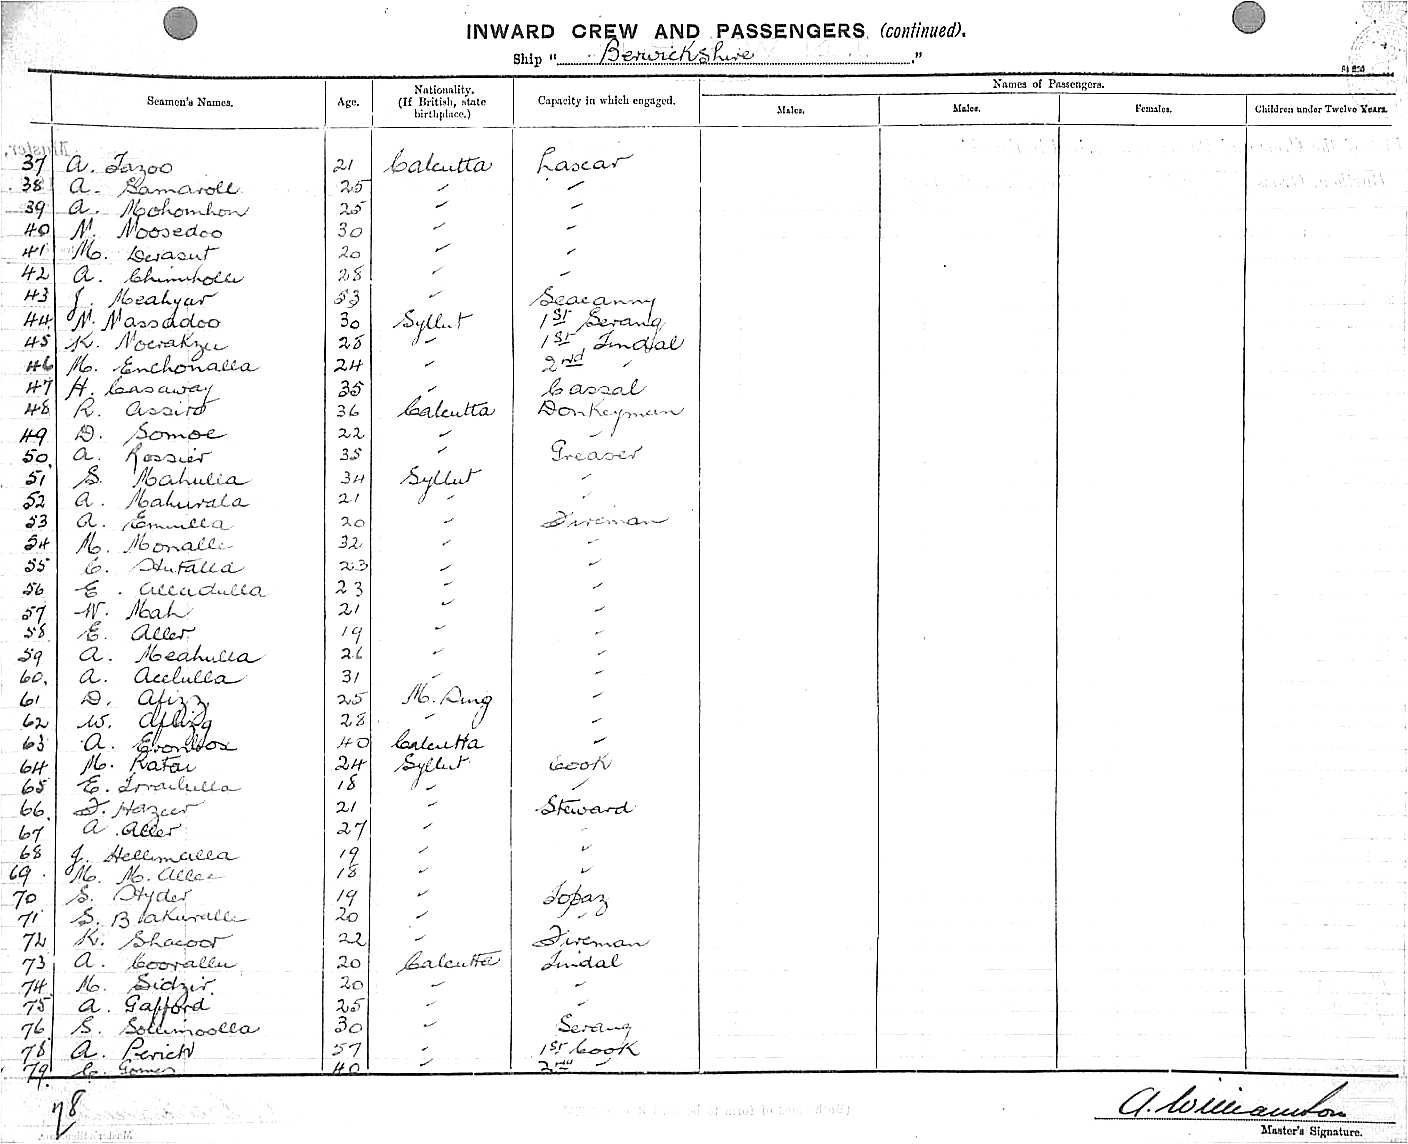 INWARD CREW AND PASSENGERS (continued).
Ship " Berwickshire ."
Seamen's Names. Age. Nationality. (If British, state birthplace.) Capacity in which engaged. Names of Passengers.
Males. Males. Females. Children under Twelve Years.
37 A. Fazoo 21 Calcutta Lascar
38 A. Samaroll 25 " "
39 A. Mohomhon 25 " "
40 N. Noosedoo 30 " "
41 M. Derasut 20 " "
42 A. 28 " "
43 J. Meahyar 53 " Seacanny
44 N. Nassadoo 30 Syllut 1st Serang
45 K. Nocrakzu 28 " 1st Tindal
46 M. Enchonalla 24 " 2nd "
47 H. Casaway 35 " Cassal
48 R. Assiro 36 Calcutta Donkeyman
49 D. Somoe 22 " "
50. A. Rossier 35 " Greaser
51 S. Mahulla 34 Syllut "
52 A. Mahurala 21 " "
53 A. Emulla 20 " Fireman
54 M. Monalle 32 " "
55 C. Hutalla 23 " "
56 E. Alladulla 23 " "
57 W. Mah 21 " "
58 E. Aller 19 " "
59 A. Meahulla 26 " "
60. A. Acelulla 31 " "
61 D. Afizz 25 M. Sing "
62 W. 28 " "
63 A. Eronbox 40 Calcutta "
64 M. Rafai 24 Syllut Cook
65 E. 18 " "
66. F. Hazeer 21 " Steward
67 A. Aller 27 " "
68 J. Hellimalla 19 " "
69. M. M. Allee 18 " "
70 S. Hyder 19 " Topaz
71 S. Bakuralle 20 "
72 K. Shacoor 22 " Fireman
73 A. Coorallu 20 Calcutta Tindal
74 M. Sidzir. 20 " "
75 A. Gafford 25 " "
76 S. Sollimoolla 30 " Serang
78 A. Perich 57 " 1st Cook
79. C. Gomes 40 " 2nd "
78
A. Williamson
Master's Signature.